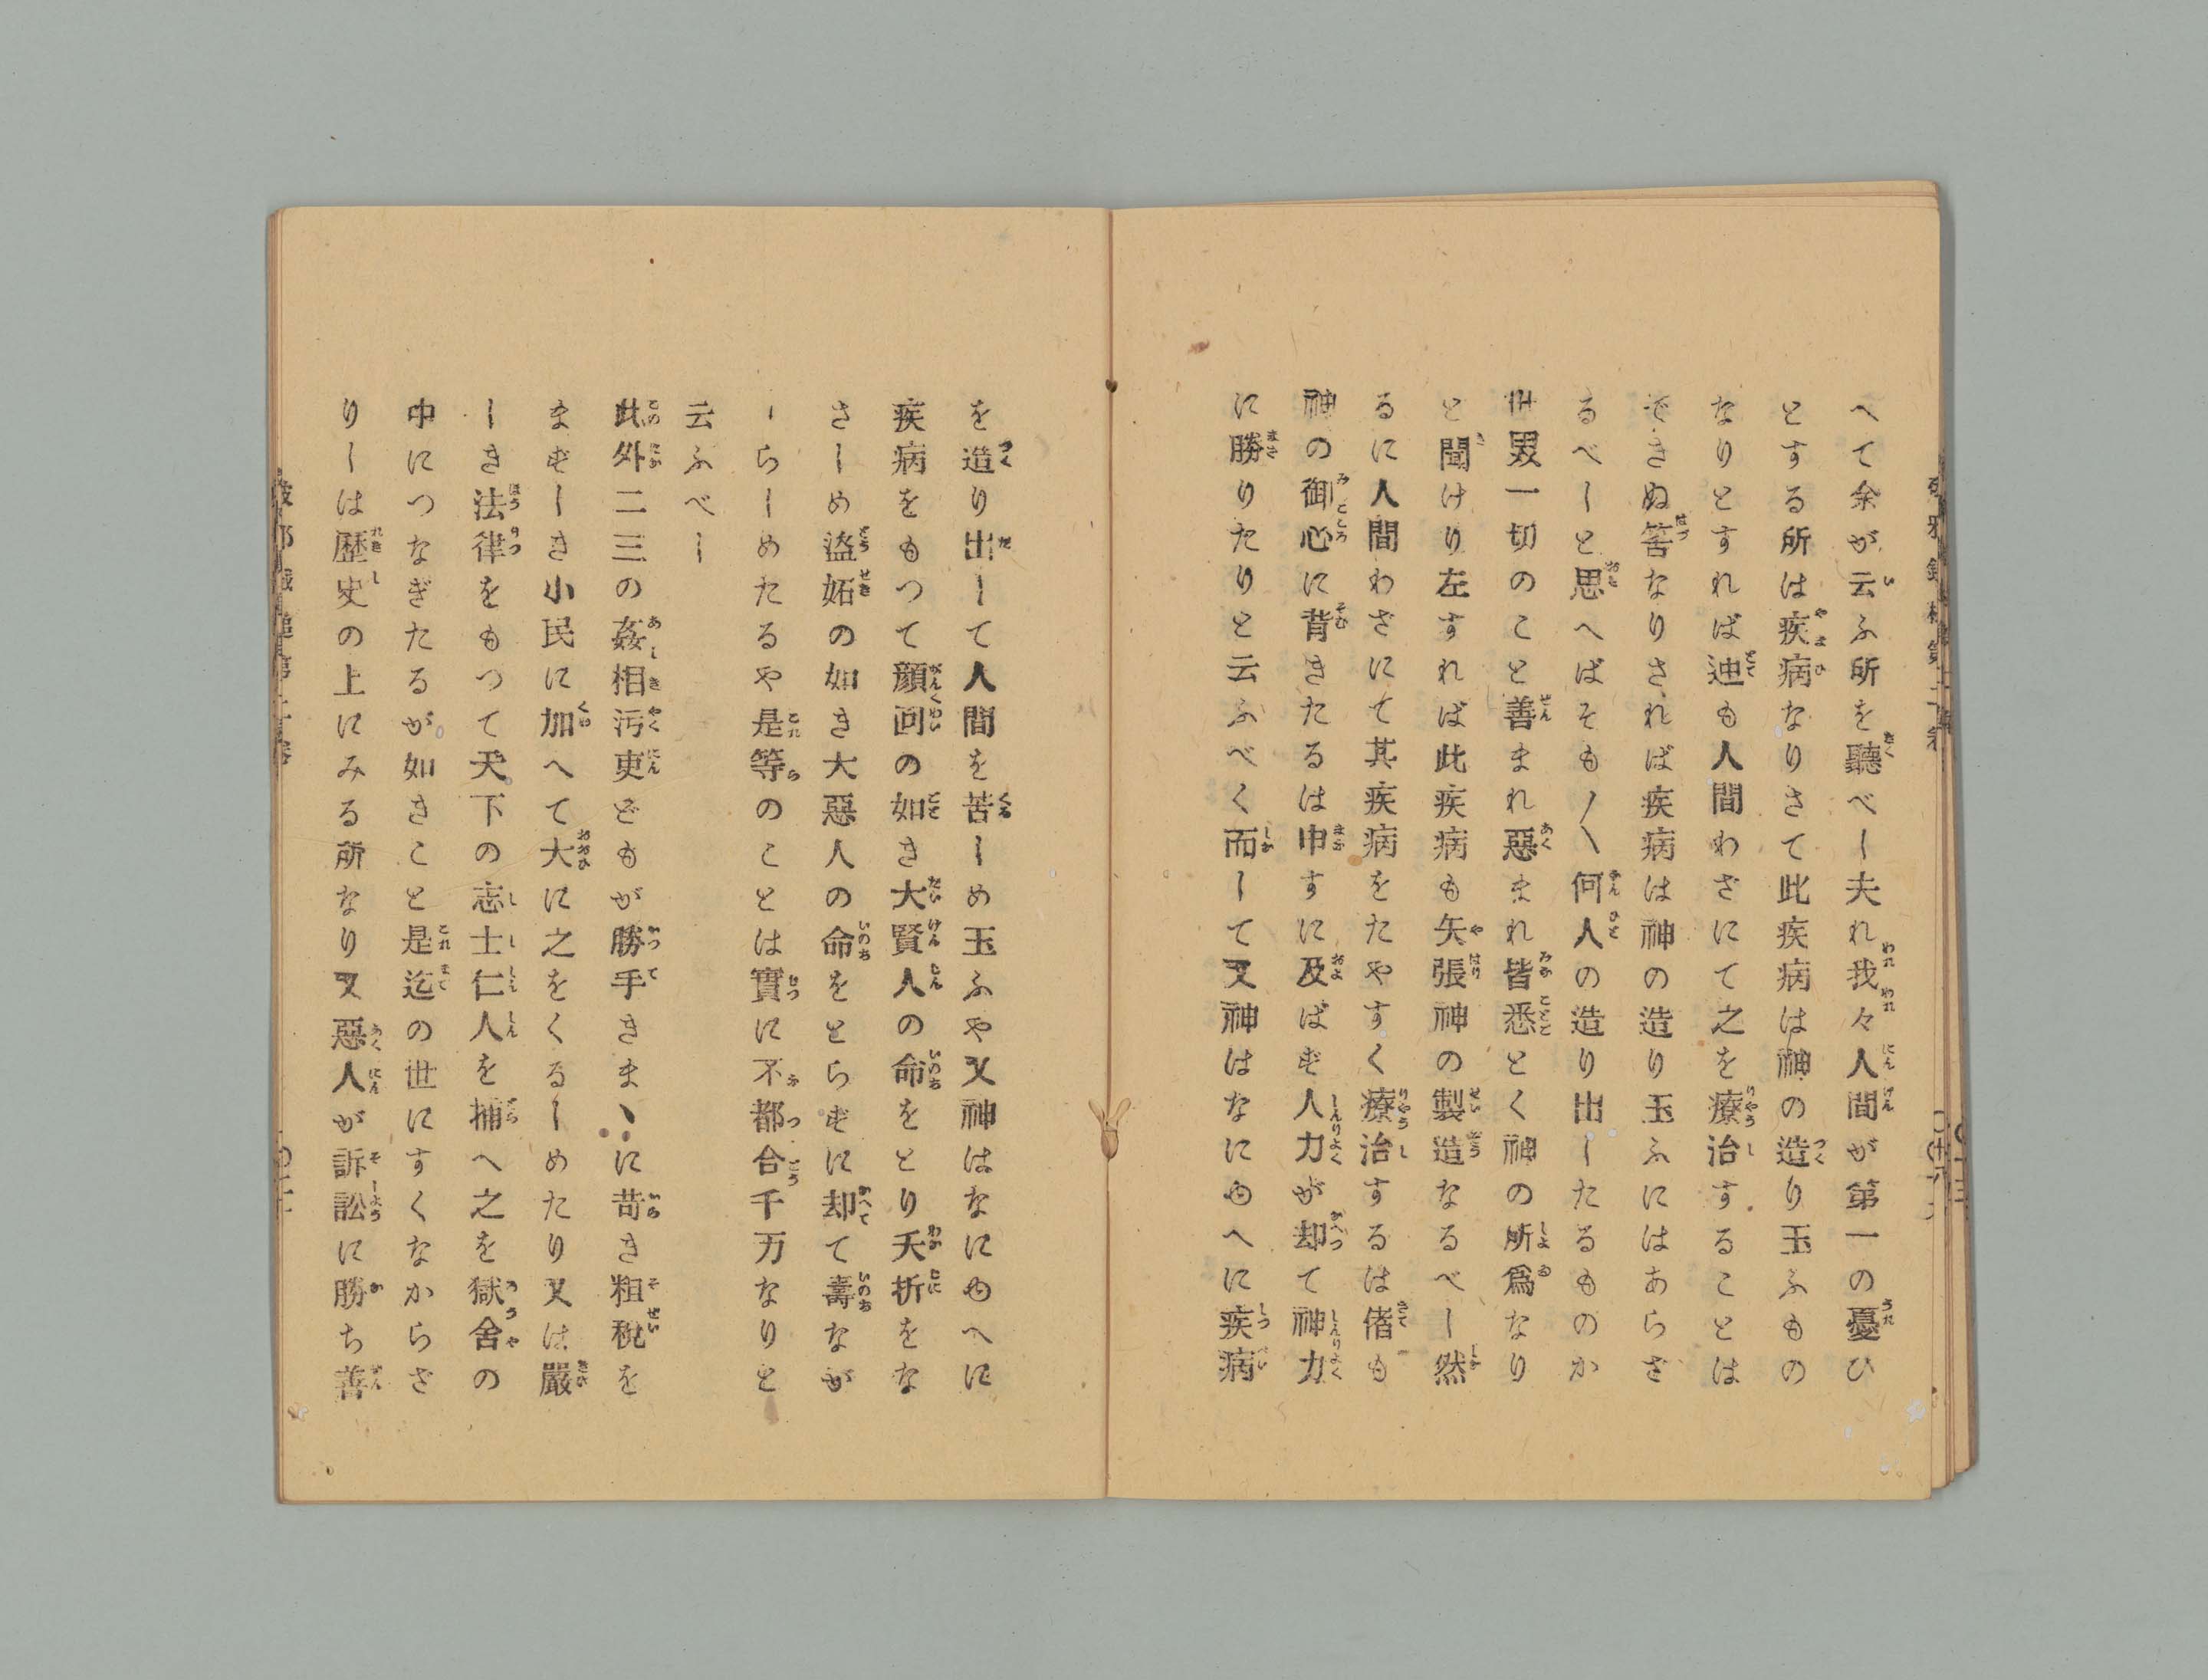 へて余が云ふ所を聽べし夫れ我々人間が第一の憂ひ
とする所は疾病なりさて此疾病は神の造り玉ふもの
なりとすれば迚も人間わざにて之を療治することは
できぬ筈なりされば疾病は神の造り玉ふにはあらざ
るべしと思へばそも〳〵何人の造り出したるものか
世界一切のこと善まれ惡まれ皆悉とく神の所爲なり
と聞けり左すれば此疾病も矢張神の製造なるべし然
るに人間わざにて其疾病をたやすく療治するは偖も
神の御心に背きたるは申すに及ばず人力が却て神力
に勝りたりと云ふべく而して又神はなにゆへに疾病
を造り出して人間を苦しめ玉ふや又神はなにゆへに
疾病をもつて顔回の如き大賢人の命をとり夭折をな
さしめ盜妬の如き大惡人の命をとらずに却て壽なが
ゝらしめたるや是等のことは實に不都合千万なりと
云ふべし
此外二三の姦相汚吏どもが勝手きまゝに苛き粗稅を
まずしき小民に加へて大に之をくるしめたり又は嚴
しき法律をもつて天下の志士仁人を捕へ之を獄舍の
中につなぎたるが如きこと是迄の世にすくなからざ
りしは歷史の上にみる所なり又惡人が訴訟に勝ち善